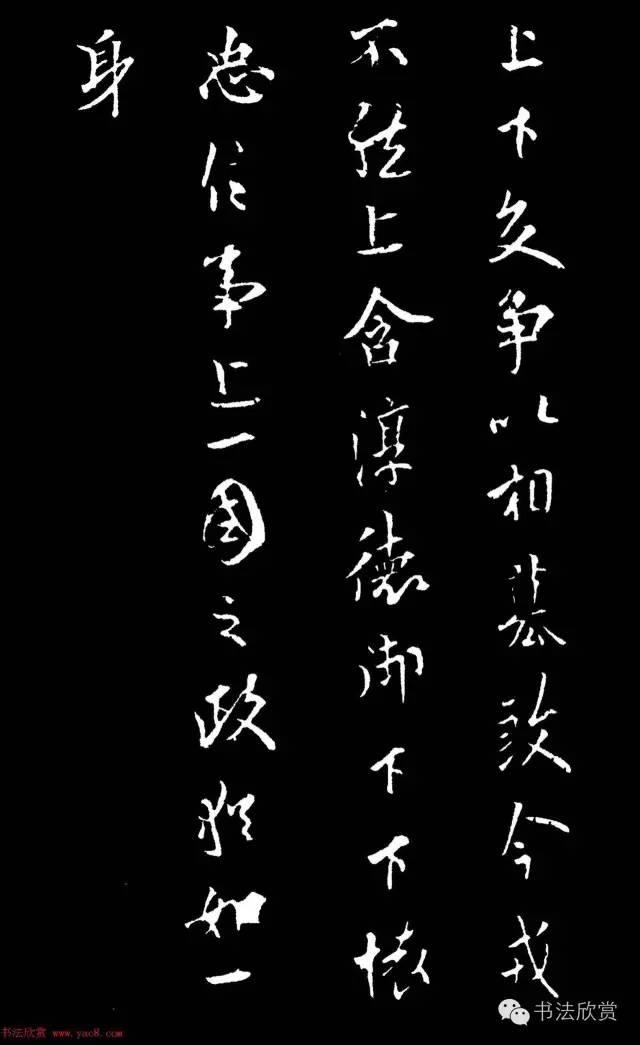 上下交争以相今戎
不然上含淳德御下下懷
忠信事上一國之政猶如一
身
书法欣赏
书法欣赏 www.yac8.com